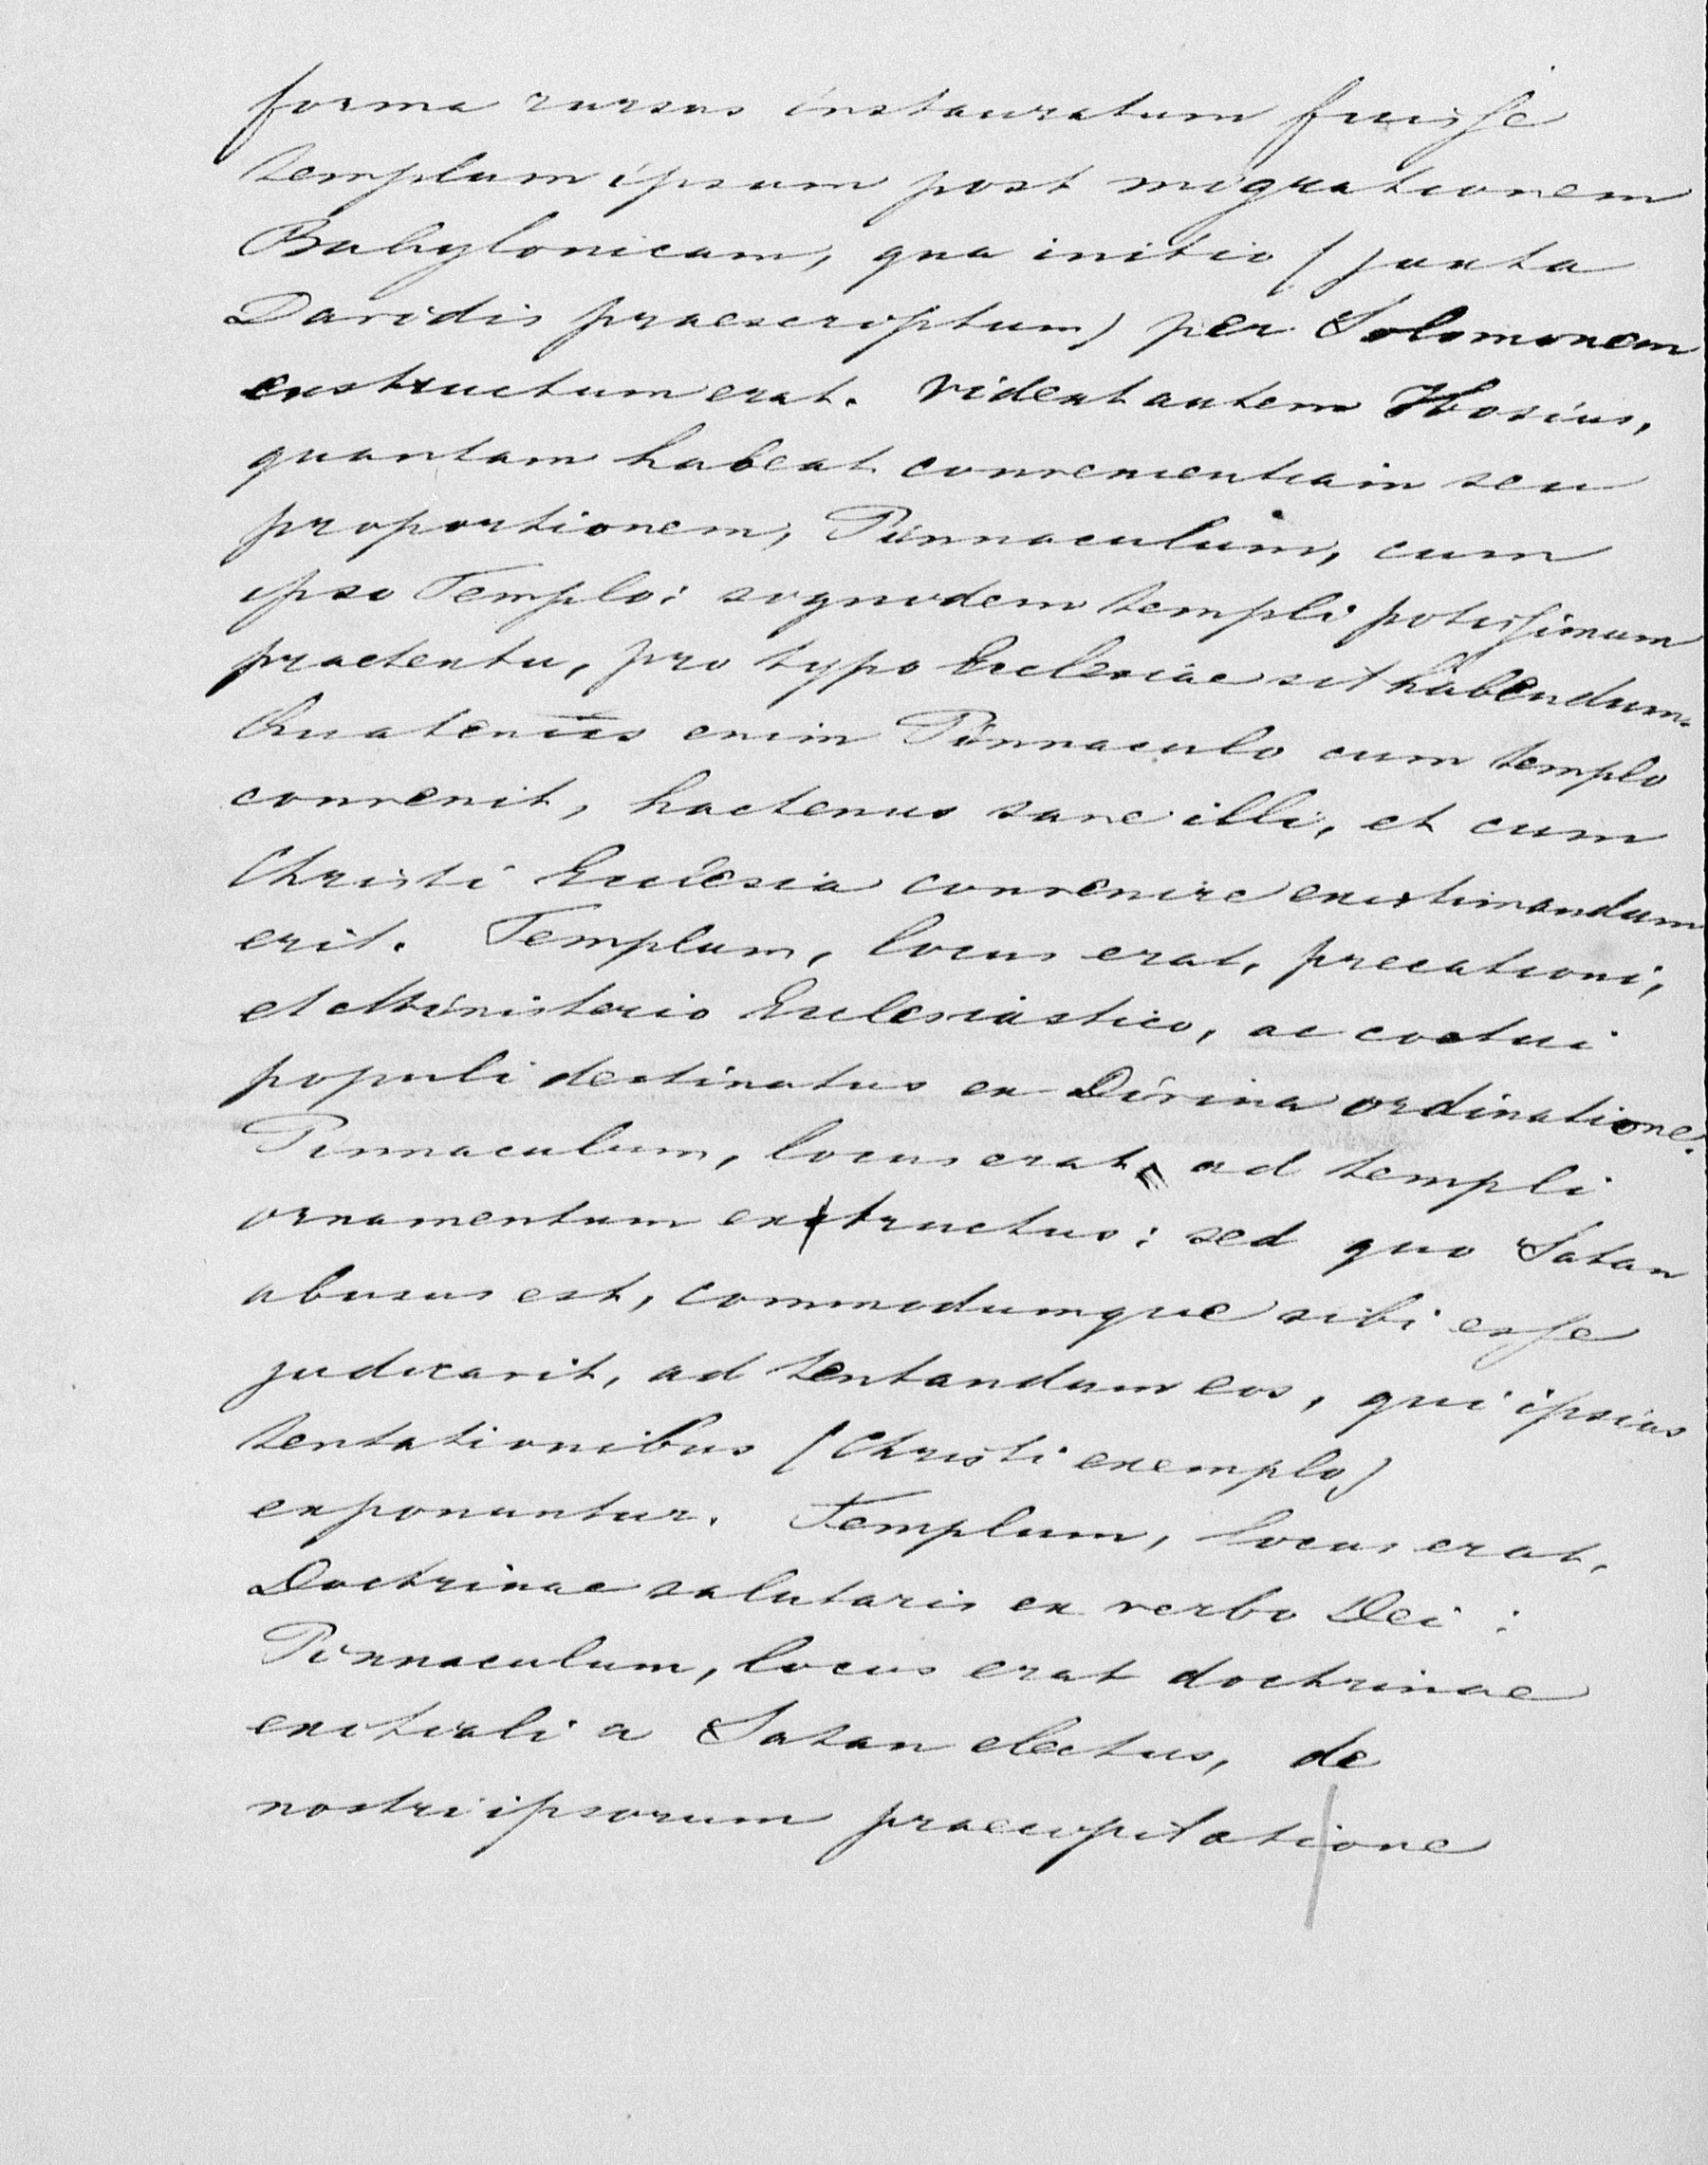 forma rursus instauratum fuisse
templum ipsum post migrationem
Babylonicam, qua initio (juxta
Davidis praescriptum) per Solomonem
exstructum erat. Videat autem Hosius,
quantam habeat convenientiam seu
proportionem, Pinnaculum, cum
ipso Templo: siquidem templi potissimum
praetextu, pro typo Ecclesiae sit habendum.
Quatenus enim Pinnaculo cum templo
convenit, hactenus sane illi, et cum
Christi Ecclesia convenire existimandum
erit. Templum, locus erat, precationi,
et Ministerio Ecclesiastico, ac coetui
populi destinatus ex Divina ordinatione.
Pinnaculum, locus erat, ad templi
ornamentum extructus: sed quo Satan
abusus est, commodumque sibi esse
judicavit, ad tentandum eos, qui ipsius
tentationibus (Christi exemplo)
exponuntur. Templum, locus erat,
Doctrinae salutaris ex verbo Dei:
Pinnaculum, locus erat doctrinae
exitiali a Satan electus, de
nostri ipsorum praecipitatione